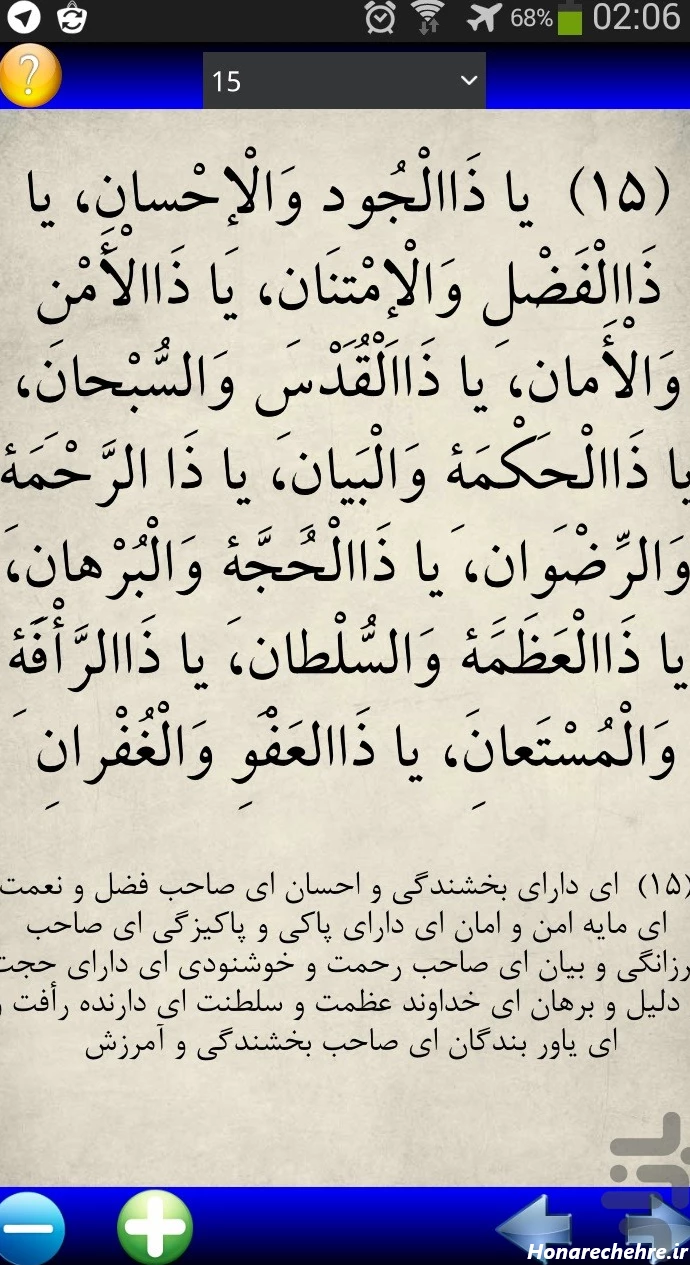 68% 02:06
15
(۱۵) یا ذَاالْجُود وَالْاِحْسانِ، یا
ذَاالْفَضْلِ وَالْاِمْتنَان، یَا ذَاالْأَمْن
وَالْأَمان، یَا ذَاالْقُدْسَ وَالسُّبْحان،
یا ذَاالْحَکْمَهٔ وَالْبَیان، یَا ذَا الرَّحْمَهٔ
وَالرِّضْوَان، یَا ذَاالْحُجَّهٔ وَالْبُرْهانِ،
یا ذَاالْعَظَمَهٔ وَالسُّلْطان، یَا ذَاالرَّأْفَهٔ
وَالْمُسْتَعانِ، یا ذَاالعَفْوِ وَالْغُفْرانِ
(۱۵) ای دارای بخشندگی و احسان ای صاحب فضل و نعمت
ای مایه امن و امان ای دارای پاکی و پاکیزگی ای صاحب
رزانگی و بیان ای صاحب رحمت و خوشنودی ای دارای حجت
دلیل و برهان ای خداوند عظمت و سلطنت ای دارنده رأفت و
ای یاور بندگان ای صاحب بخشندگی و آمرزش
بازار
Honarechehre.ir